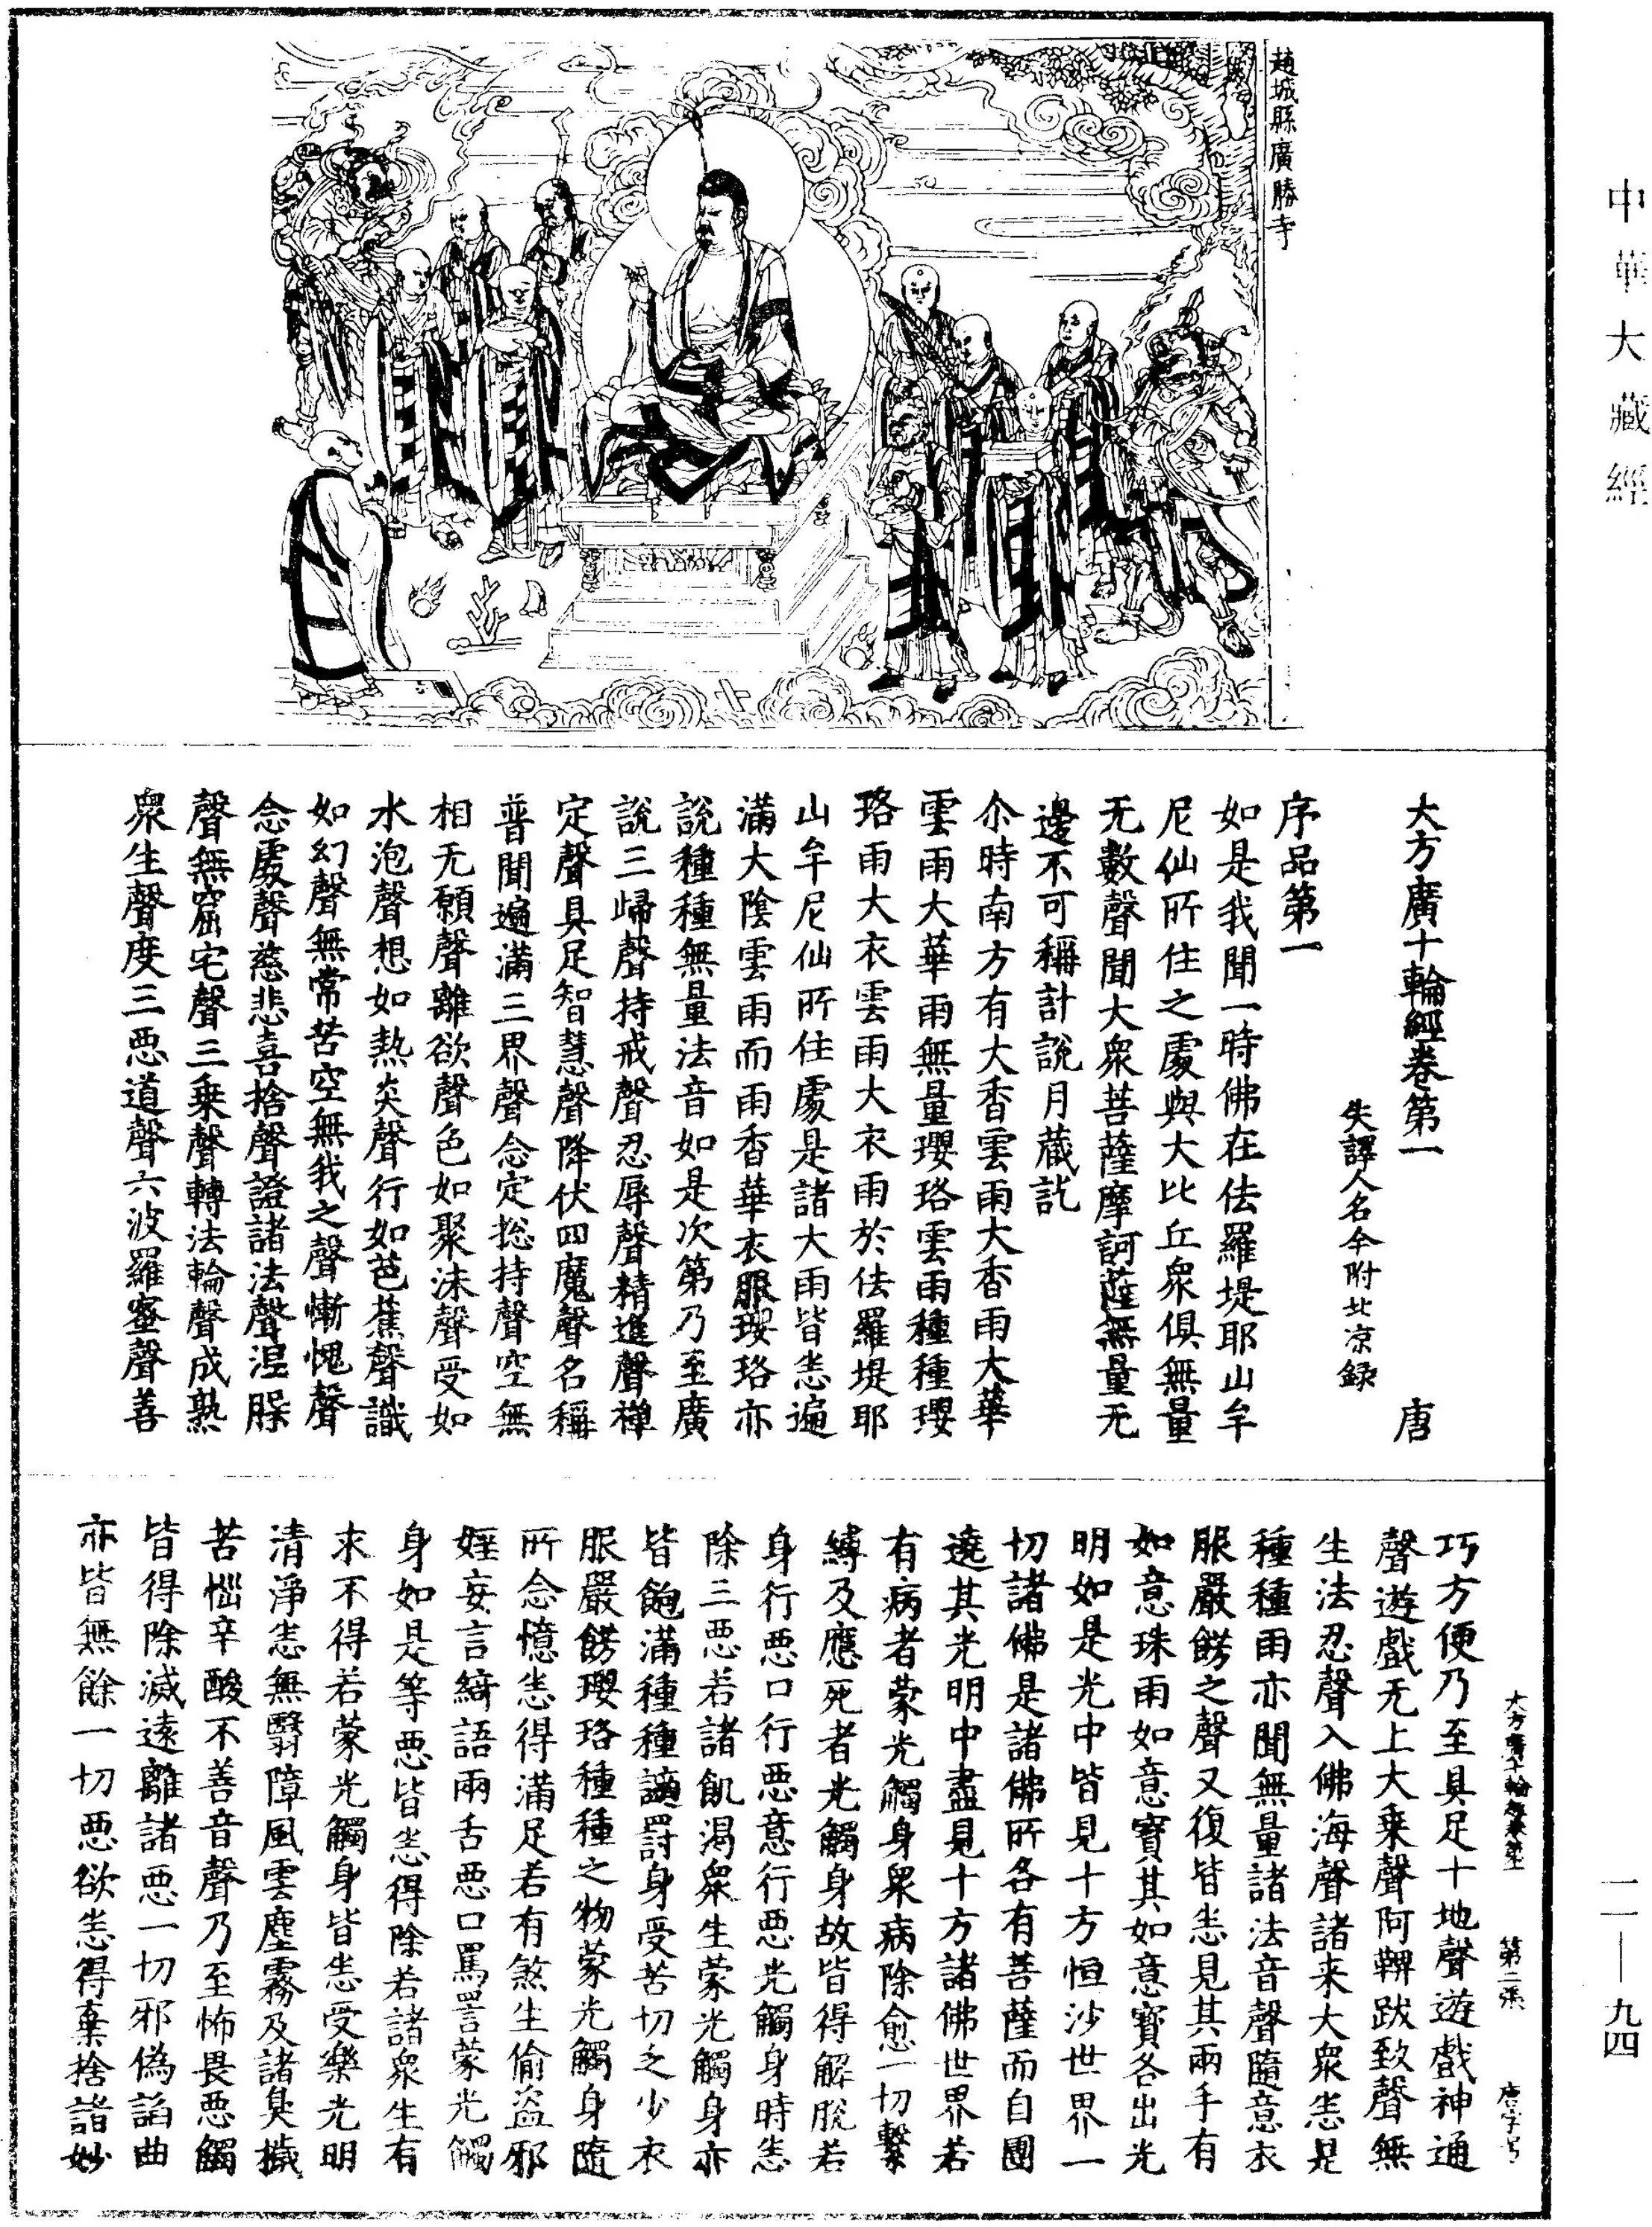 中華大藏經
趙城縣廣勝寺
大方廣十輪經卷第一　唐
失譯人名今附北涼録
序品第一
如是我聞一時佛在佉羅堤耶山牟
尼仙所住之處與大比丘衆俱無量
无數聲聞大衆菩薩摩訶薩無量无
邊不可稱計說月藏訖
尒時南方有大香雲雨大香雨大華
雲雨大華雨無量瓔珞雲雨種種瓔
珞雨大衣雲雨大衣雨於佉羅堤耶
山牟尼仙所住處是諸大雨皆悉遍
滿大陰雲雨而雨香華衣服瓔珞亦
說種種無量法音如是次第乃至廣
說三歸聲持戒聲忍辱聲精進聲禅
定聲具足智慧聲降伏四魔聲名稱
普聞遍滿三界聲念定捴持聲空無
相无願聲離欲聲色如聚沫聲受如
水泡聲想如熱炎聲行如芭蕉聲識
如幻聲無常苦空無我之聲慚愧聲
念處聲慈悲喜捨聲證諸法聲涅槃
聲無窟宅聲三乗聲轉法輪聲成熟
衆生聲度三惡道聲六波羅蜜聲善
大方廣十輪經卷第一　第二張　唐字号
巧方便乃至具足十地聲遊戲神通
聲遊戲无上大乗聲阿鞞跋致聲無
生法忍聲入佛海聲諸来大衆悉是
種種雨亦聞無量諸法音聲隨意衣
服嚴餝之聲又復皆悉見其兩手有
如意珠雨如意寶其如意寶各出光
明如是光中皆見十方恒沙世界一
切諸佛是諸佛所各有菩薩而自圍
遶其光明中盡見十方諸佛世界若
有病者蒙光觸身衆病除愈一切繫
縛及應死者光觸身故皆得解脫若
身行惡口行惡意行惡光觸身時悉
除三惡若諸飢渴衆生蒙光觸身亦
皆飽滿種種讁罸身受苦切乏少衣
服嚴餝瓔珞種種之物蒙光觸身隨
所念憶悉得滿足若有煞生偷盜邪
婬妄言綺語兩舌惡口罵詈蒙光觸
身如是等惡皆悉得除若諸衆生有
求不得若蒙光觸身皆悉受樂光明
清淨悉無翳障風雲塵霧及諸臭穢
苦惱辛酸不善音聲乃至怖畏惡觸
皆得除滅遠離諸惡一切邪僞諂曲
亦皆無餘一切惡欲悉得棄捨諸妙
一一—九四